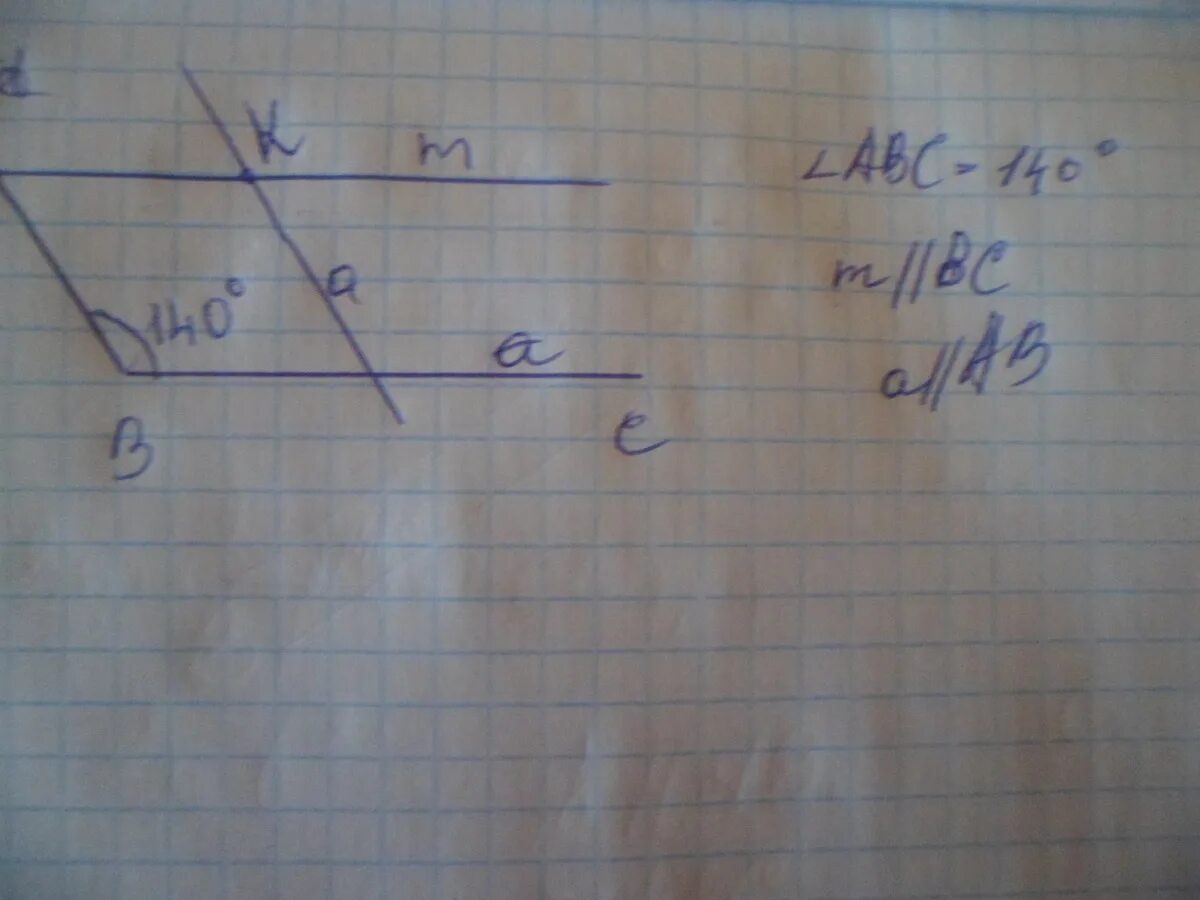 K m
a
140°
a
B C
∠ABC = 140°
m//BC
a//AB